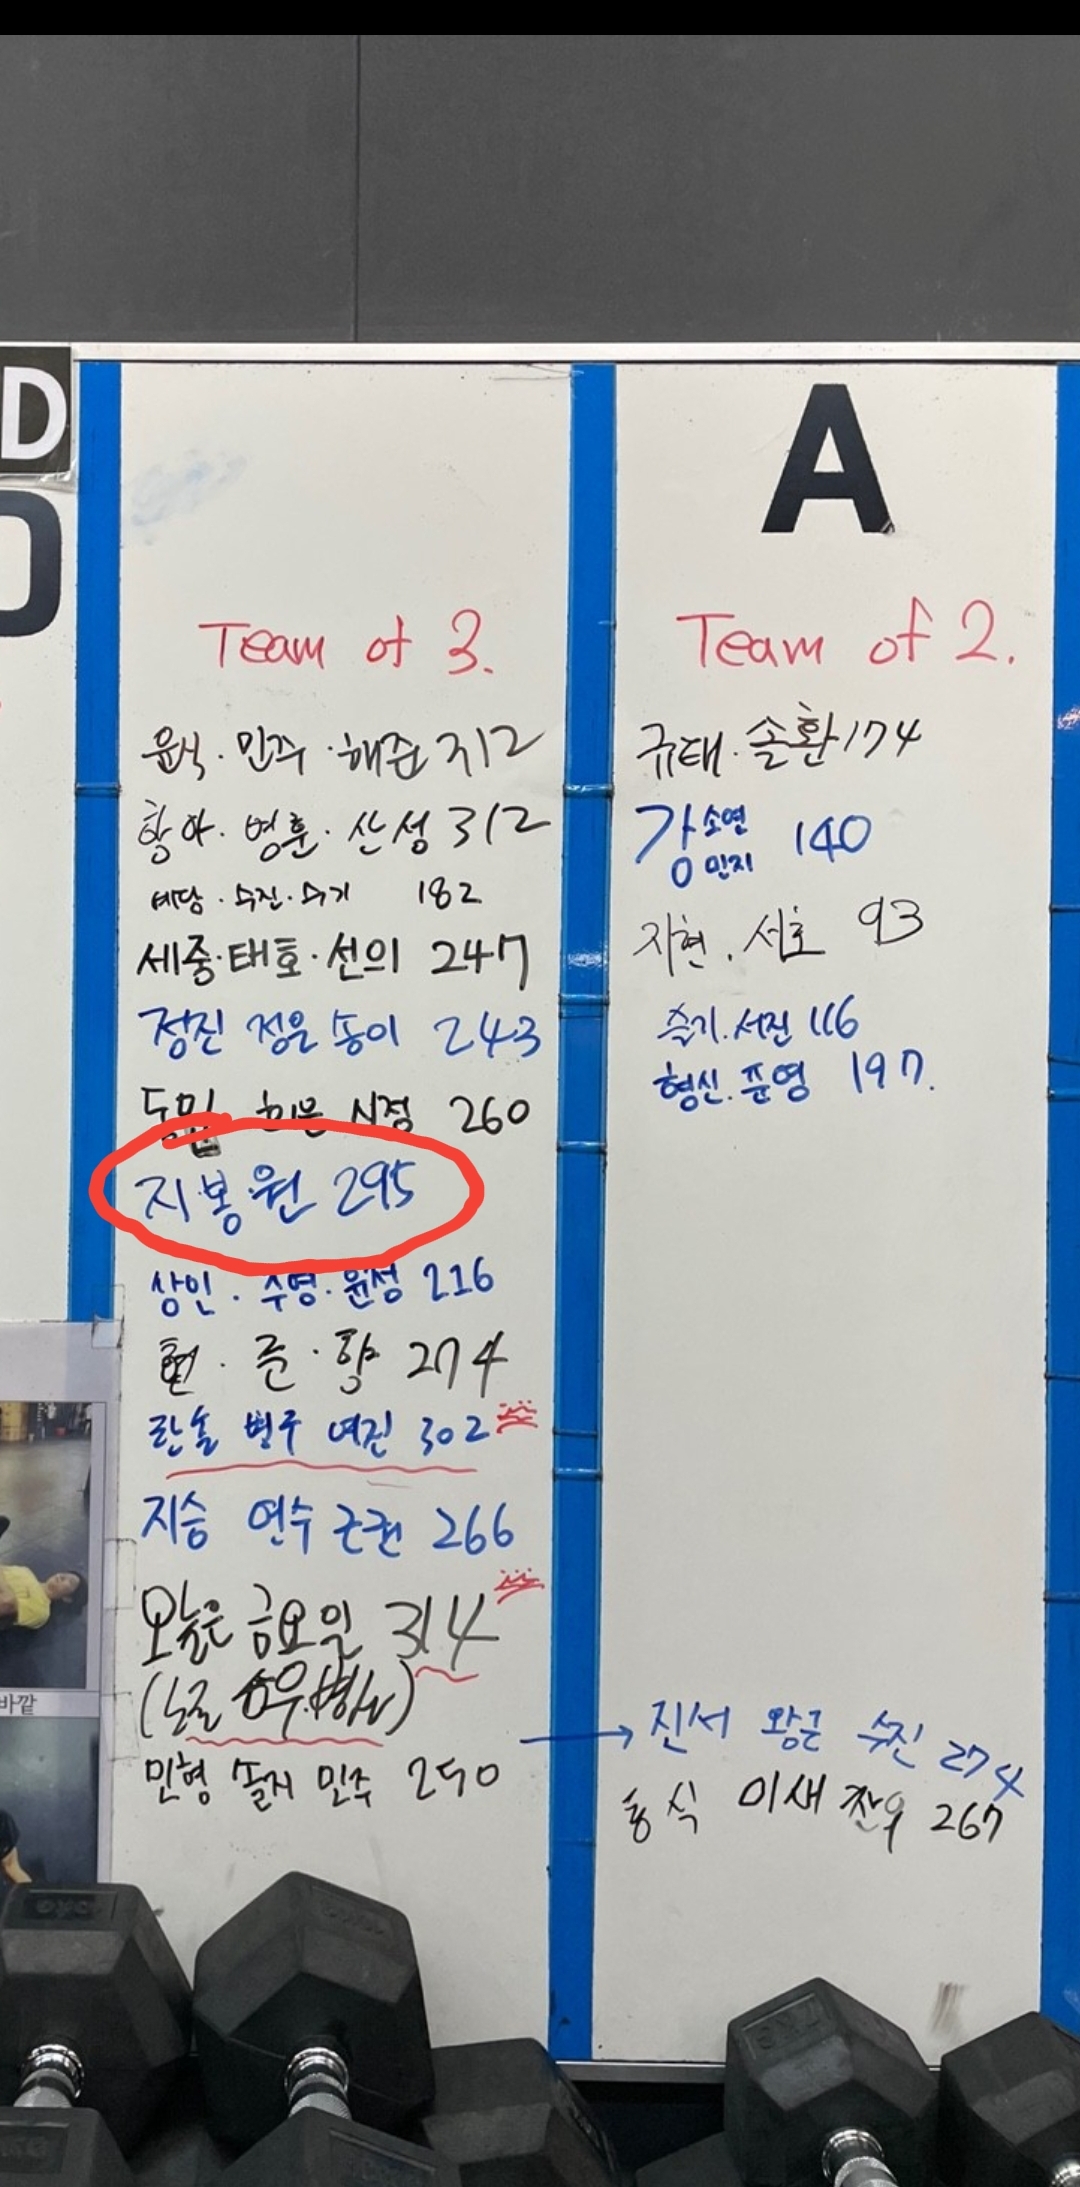 D
Team of 3.
윤석·민주·해준 312
항아·병훈·산성 312
예당·수진·슬기 182
세중·태호·선의 247
정진 정은 송이 243
희은 시정 260
지·봉·원 295
상인·수영·윤성 216
현·준·향 274
란솔 병주 여진 302
지승 연수 근권 266
오늘은 금요일 314
민형 솔지 민주 290
바깥
A
Team of 2.
규태·솔환 174
강 소연 민지 140
지현·서호 93
슬기·서진 116
형신·준영 197.
→ 진서 왕근 수진 274
홍식 이새 찬우 267